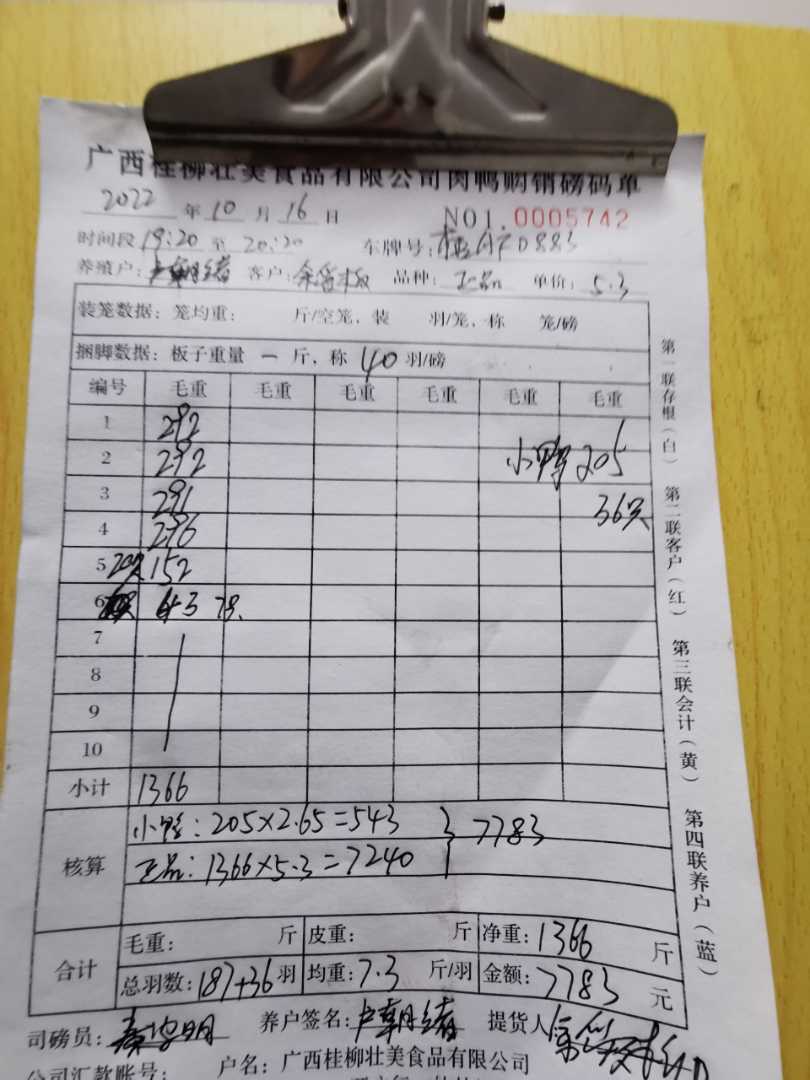 广西桂柳壮美食品有限公司肉鸭购销磅码单
2022 年 10 月 16 日 NO1. 0005742
时间段 19:20 至 20:20 车牌号: D883
养殖户: 客户: 品种: 正品 单价: 5.3
装笼数据: 笼均重: 斤/空笼, 装 羽/笼, 称 笼/磅
捆脚数据: 板子重量 一 斤, 称 40 羽/磅
编号 毛重 毛重 毛重 毛重 毛重 毛重
1 292
2 292 小鸭 205
3 291 36只
4 296
5 20只 152
6 43 7只
7
8
9
10
小计 1366
核算 小鸭: 205×2.65=543 } 7783
正品: 1366×5.3=7240
合计 毛重: 斤 皮重: 斤 净重: 1366 斤
总羽数: 187+36 羽 均重: 7.3 斤/羽 金额: 7783 元
司磅员: 养户签名: 提货人
公司汇款账号: 户名: 广西桂柳壮美食品有限公司
第一联存根(白) 第二联客户(红) 第三联会计(黄) 第四联养户(蓝)